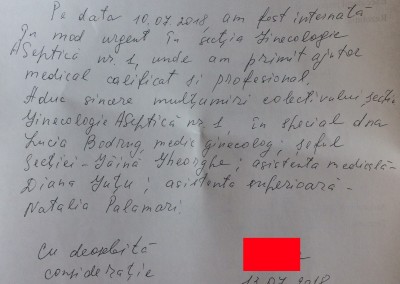 Pe data 10.07.2018 am fost internată
în mod urgent în secția Ginecologie
ASeptică nr. 1, unde am primit ajutor
medical calificat și profesional.
Aduc sincere mulțumiri colectivului secției
Ginecologie ASeptică nr. 1, în special dna
Lucia Bodrug, medic ginecolog; șeful
secției - Găină Gheorghe; asistenta medicală -
Diana Guțu; asistenta inferioară -
Natalia Palamari.
Cu deosebită
considerație
11.07.2018